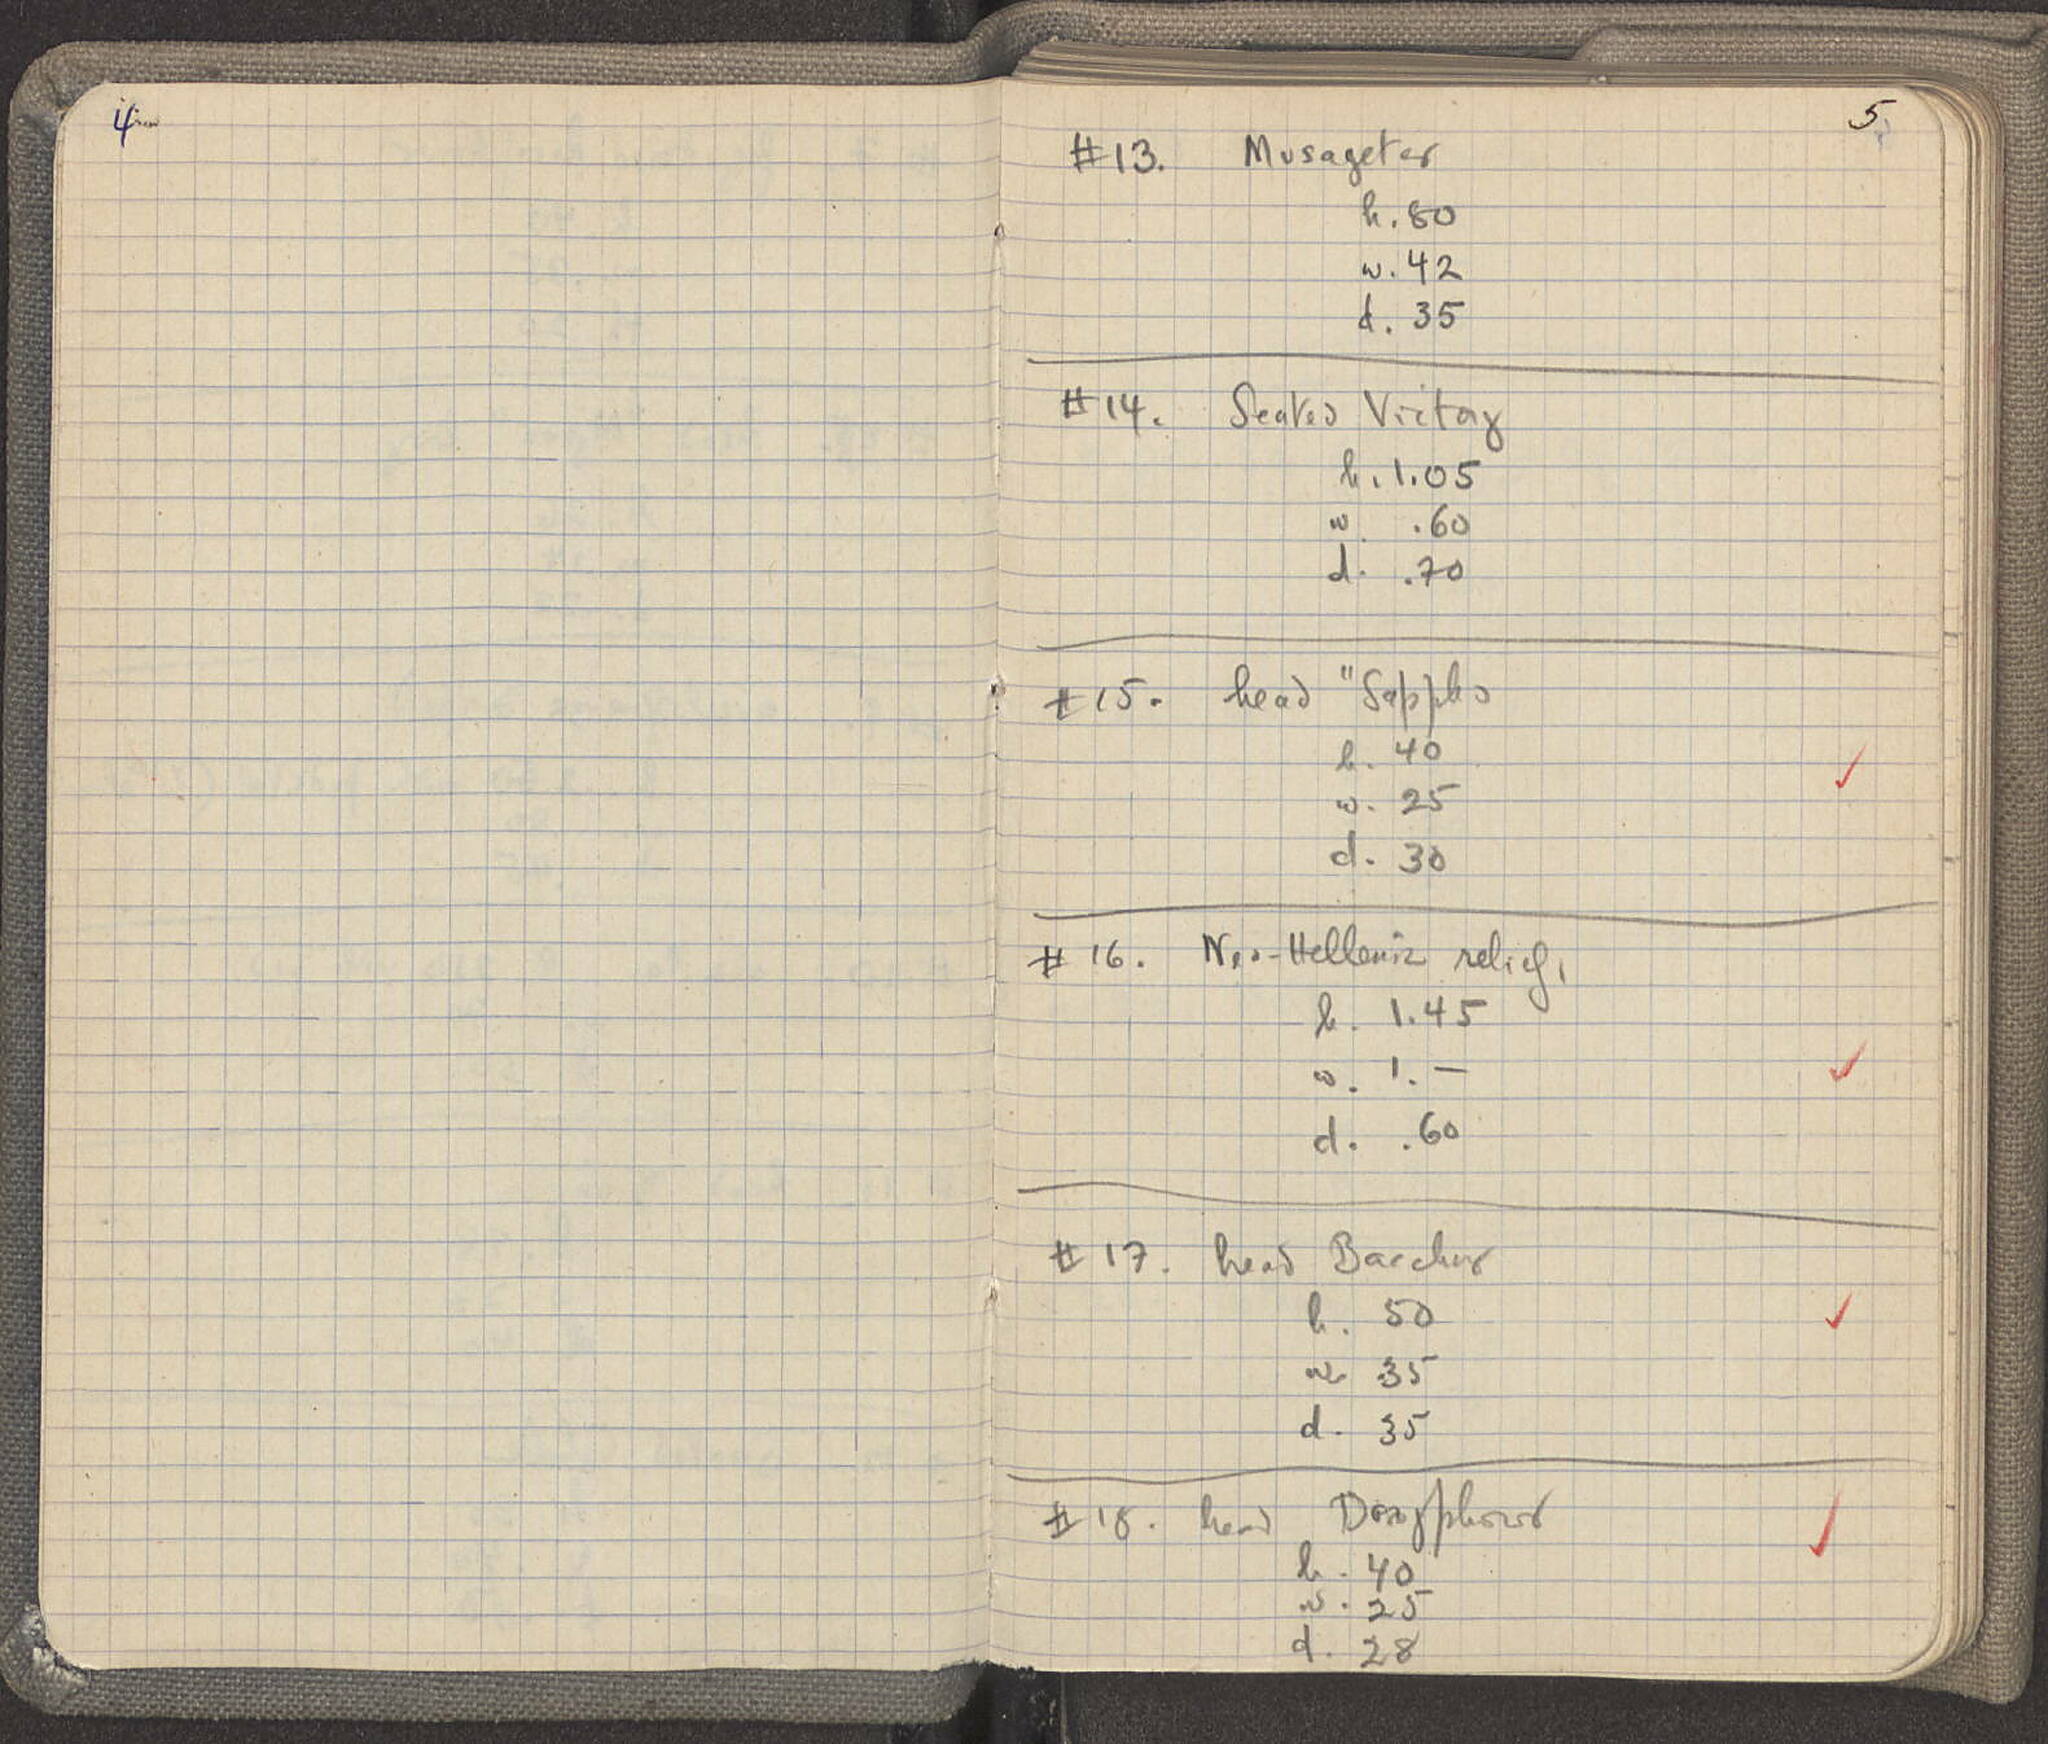 4
5
#13. Musagetes
h. 80
w. 42
d. 35
#14. Seated Victory
h. 1.05
w. .60
d. .70
#15. head "Sappho
h. 40
w. 25
d. 30
#16. Neo-Hellenic relief,
h. 1.45
w. 1.—
d. .60
#17. head Bacchus
h. 50
w. 35
d. 35
#18. head Doryphoros
h. 40
w. 25
d. 28